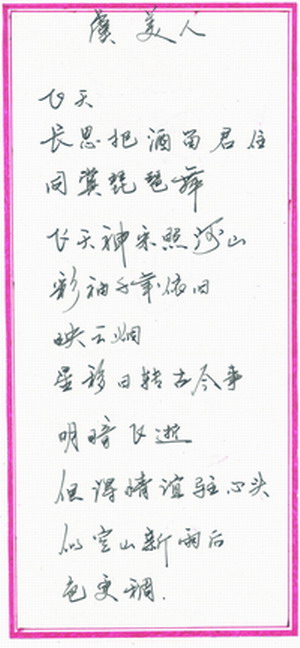 虞美人
飞天
长思把酒留君住
同冀琵琶舞
飞天神采照河山
彩袖千年依旧
映云烟
星移日转古今事
明暗飞逝
但得情谊驻心头
似空山新雨后
色更稠.